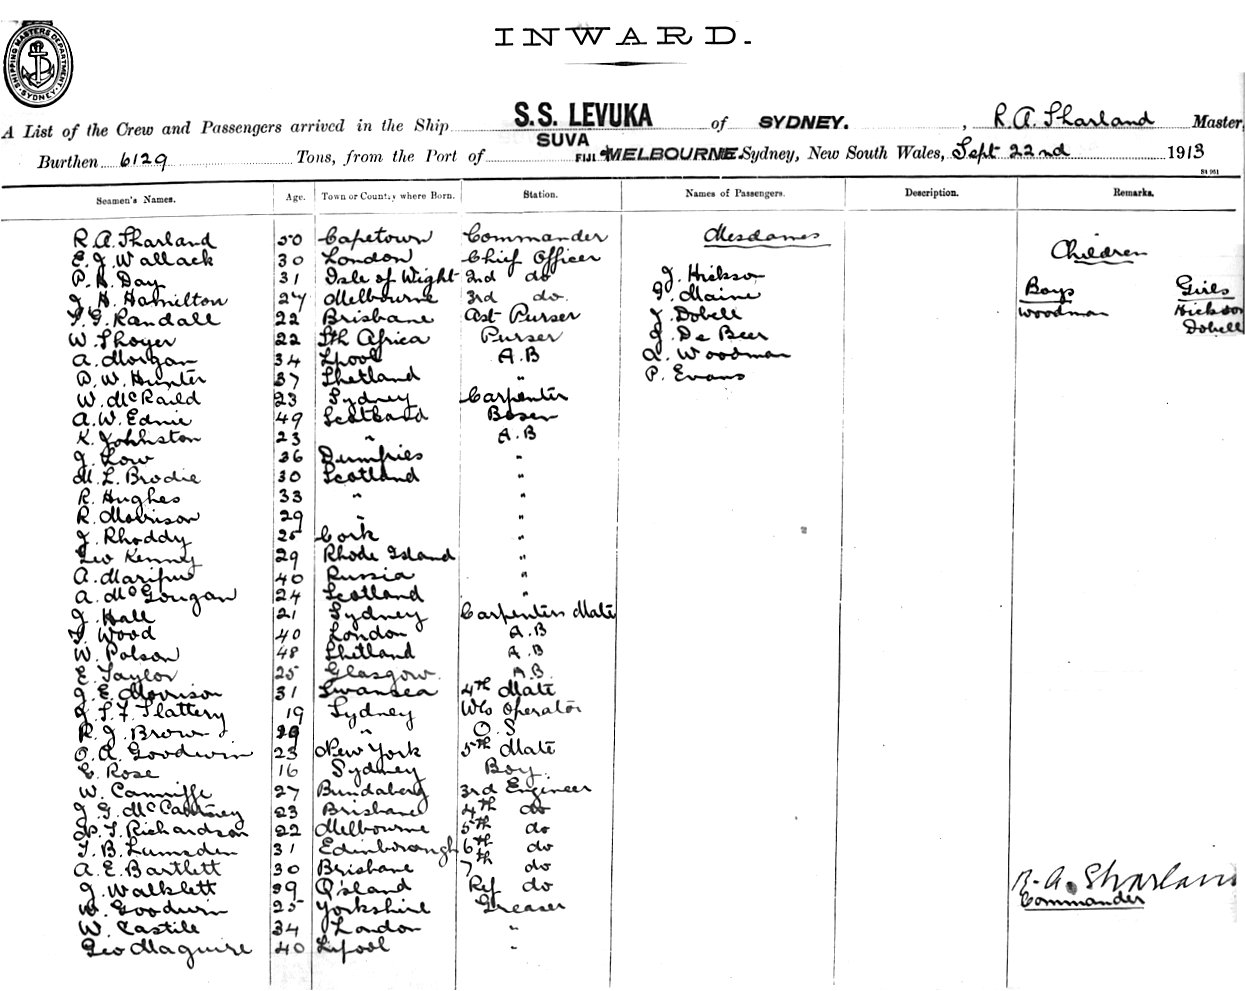 INWARD.
SHIPPING MASTERS DEPARTMENT
SYDNEY
A List of the Crew and Passengers arrived in the Ship S.S. LEVUKA of SYDNEY. , R. A. Sharland Master,
Burthen 6129 Tons, from the Port of SUVA FIJI MELBOURNE. Sydney, New South Wales, Sept 22nd 1913
Seamen's Names. Age. Town or Country where Born. Station. Names of Passengers. Description. Remarks.
R. A. Sharland 50 Capetown Commander Mesdames
Children
E. J. Wallack 30 London Chief Officer
P. H. Day 31 Isle of Wight 2nd do J. Hickson Boys Girls
J. H. Hamilton 27 Melbourne 3rd do. I. Maine
F. G. Randall 22 Brisbane Ast Purser J. Dobell Woodman Hickson
W. Thoyer 22 Sth Africa Purser J. De Beer Dobell
A. Morgan 34 Lpool A.B A. Woodman
D. W. Hunter 37 Shetland " P. Evans
W. McRaild 23 Sydney Carpenter
A. W. Ednie 49 Scotland Bosen
K. Johnston 23 " A.B
J. Low 36 Dumfries "
M. L. Brodie 30 Scotland "
R. Hughes 33 " "
R. Morrison 29 " "
J. Rhoddy 25 Cork "
Geo Kenney 29 Rhode Island "
A. 40 Russia "
A. McGougan 24 Scotland "
J. Hall 21 Sydney Carpenters Mate
T. Wood 40 London A.B
W. Polson 48 Shetland A.B
E. Taylor 25 Glasgow. A.B.
J. E. Morrison 31 Swansea 4th Mate
J. S. F. Slattery 19 Sydney W/o Operator
R. J. Brown " O.S
O. A. Goodwin 23 New York 5th Mate
C. Rose 16 Sydney Boy.
W. Canniffe 27 Bundaberg 3rd Engineer
J. G. McCartney 23 Brisbane 4th do
T. Richardson 22 Melbourne 5th do
T. B. Lumsden 31 Edinborough 6th do
A. E. Bartlett 30 Brisbane 7th do
J. Walklett 29 Q'sland Ref do R. A. Sharland
W. Goodwin 25 Yorkshire Greaser Commander
W. Castile 34 London "
Geo Maguire 40 Lipool "